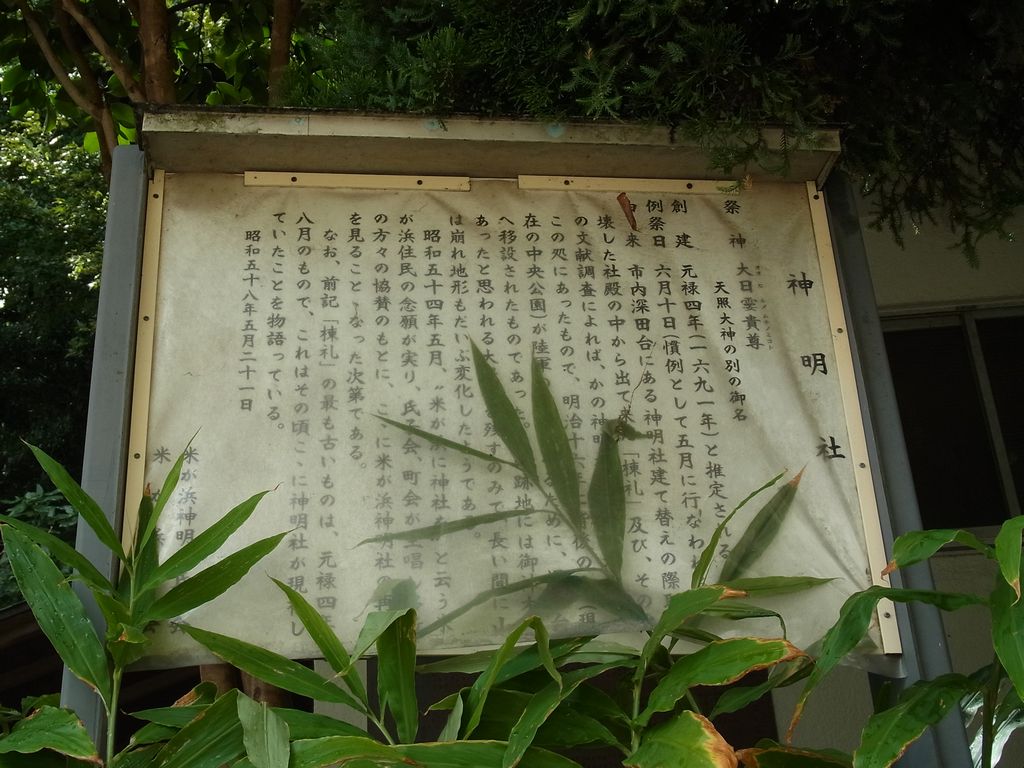 神明社
祭神 大日孁貴尊
天照大神の別の御名
創建 元禄四年(一六九一年)と推定される
例祭日 六月十日(慣例として五月に行なわれ
来 市内深田台にある神明社建て替えの際
壊した社殿の中から出て来た「棟札」及び、その
の文献調査によれば、かの神明
この処にあったもので、明治十六年に
在の中央公園)が陸軍の
へ移設されたものであった。跡地には御
あったと思われる大 残すのみで長い間に山
は崩れ地形もだいぶ変化したようである。
昭和五十四年五月、〝米が浜に神社を〟と云う
が浜住民の念願が実り、氏子会、町会が
の方々の協賛のもとに、こゝに米が浜神明社の再
を見ることゝなった次第である。
なお、前記「棟札」の最も古いものは、元禄四年
八月のもので、これはその頃こゝに神明社が現
ていたことを物語っている。
昭和五十八年五月二十一日
米が浜神明
米が浜